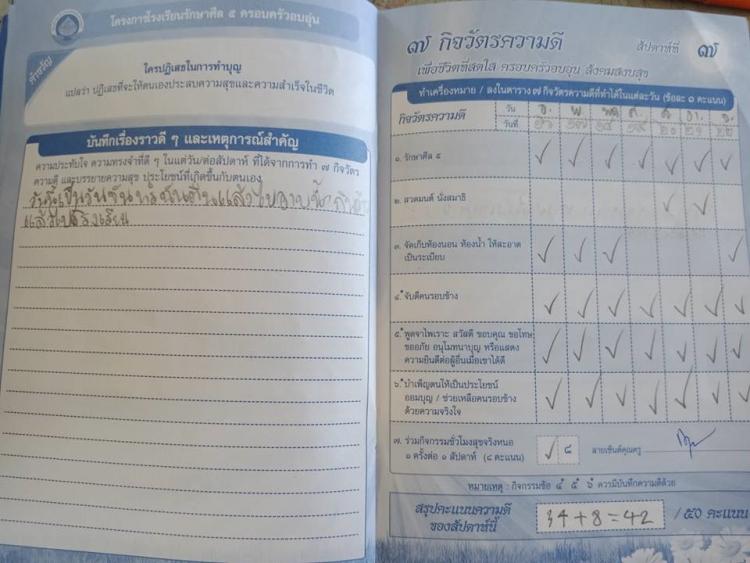 โครงการโรงเรียนรักษาศีล ๕ ครอบครัวอบอุ่น
คำขวัญ
ใครปฏิเสธในการทำบุญ
แปลว่า ปฏิเสธที่จะให้ตนเองประสบความสุขและความสำเร็จในชีวิต
บันทึกเรื่องราวดี ๆ และเหตุการณ์สำคัญ
ความประทับใจ ความทรงจำที่ดี ๆ ในแต่วัน/ต่อสัปดาห์ ที่ได้จากการทำ ๗ กิจวัตร
ความดี และบรรยายความสุข ประโยชน์ที่เกิดขึ้นกับตนเอง
วันนี้เป็นวันจันทร์ฉันตื่นแล้วไปอาบน้ำ
แล้วไปโรงเรียน
๗ กิจวัตรความดี
สัปดาห์ที่ ๗
เพื่อชีวิตที่สดใส ครอบครัวอบอุ่น สังคมสงบสุข
ทำเครื่องหมาย / ลงในตาราง ๗ กิจวัตรความดีที่ทำได้ในแต่ละวัน (ข้อละ ๑ คะแนน)
กิจวัตรความดี
วัน อ. พ. พฤ ศ. ส อา. จ.
วันที่ ๑๖ ๑๗ ๑๘ ๑๙ ๒๐ ๒๑ ๒๒
๑. รักษาศีล ๕
๒. สวดมนต์ นั่งสมาธิ
๓. จัดเก็บห้องนอน ห้องน้ำ ให้สะอาด
เป็นระเบียบ
๔. จับดีคนรอบข้าง
๕. พูดจาไพเราะ สวัสดี ขอบคุณ ขอโทษ
ขออภัย อนุโมทนาบุญ หรือแสดง
ความยินดีต่อผู้อื่นเมื่อเขาได้ดี
๖. บำเพ็ญตนให้เป็นประโยชน์
ออมบุญ / ช่วยเหลือคนรอบข้าง
ด้วยความจริงใจ
๗. ร่วมกิจกรรมชั่วโมงสุขจริงหนอ
๑ ครั้งต่อ ๑ สัปดาห์ (๘ คะแนน)
๘
ลายเซ็นต์คุณครู
หมายเหตุ : กิจกรรมข้อ ๔ ๕ ๖ ควรมีบันทึกความดีด้วย
สรุปคะแนนความดี
ของสัปดาห์นี้
34+8=42
/ ๕๐ คะแนน